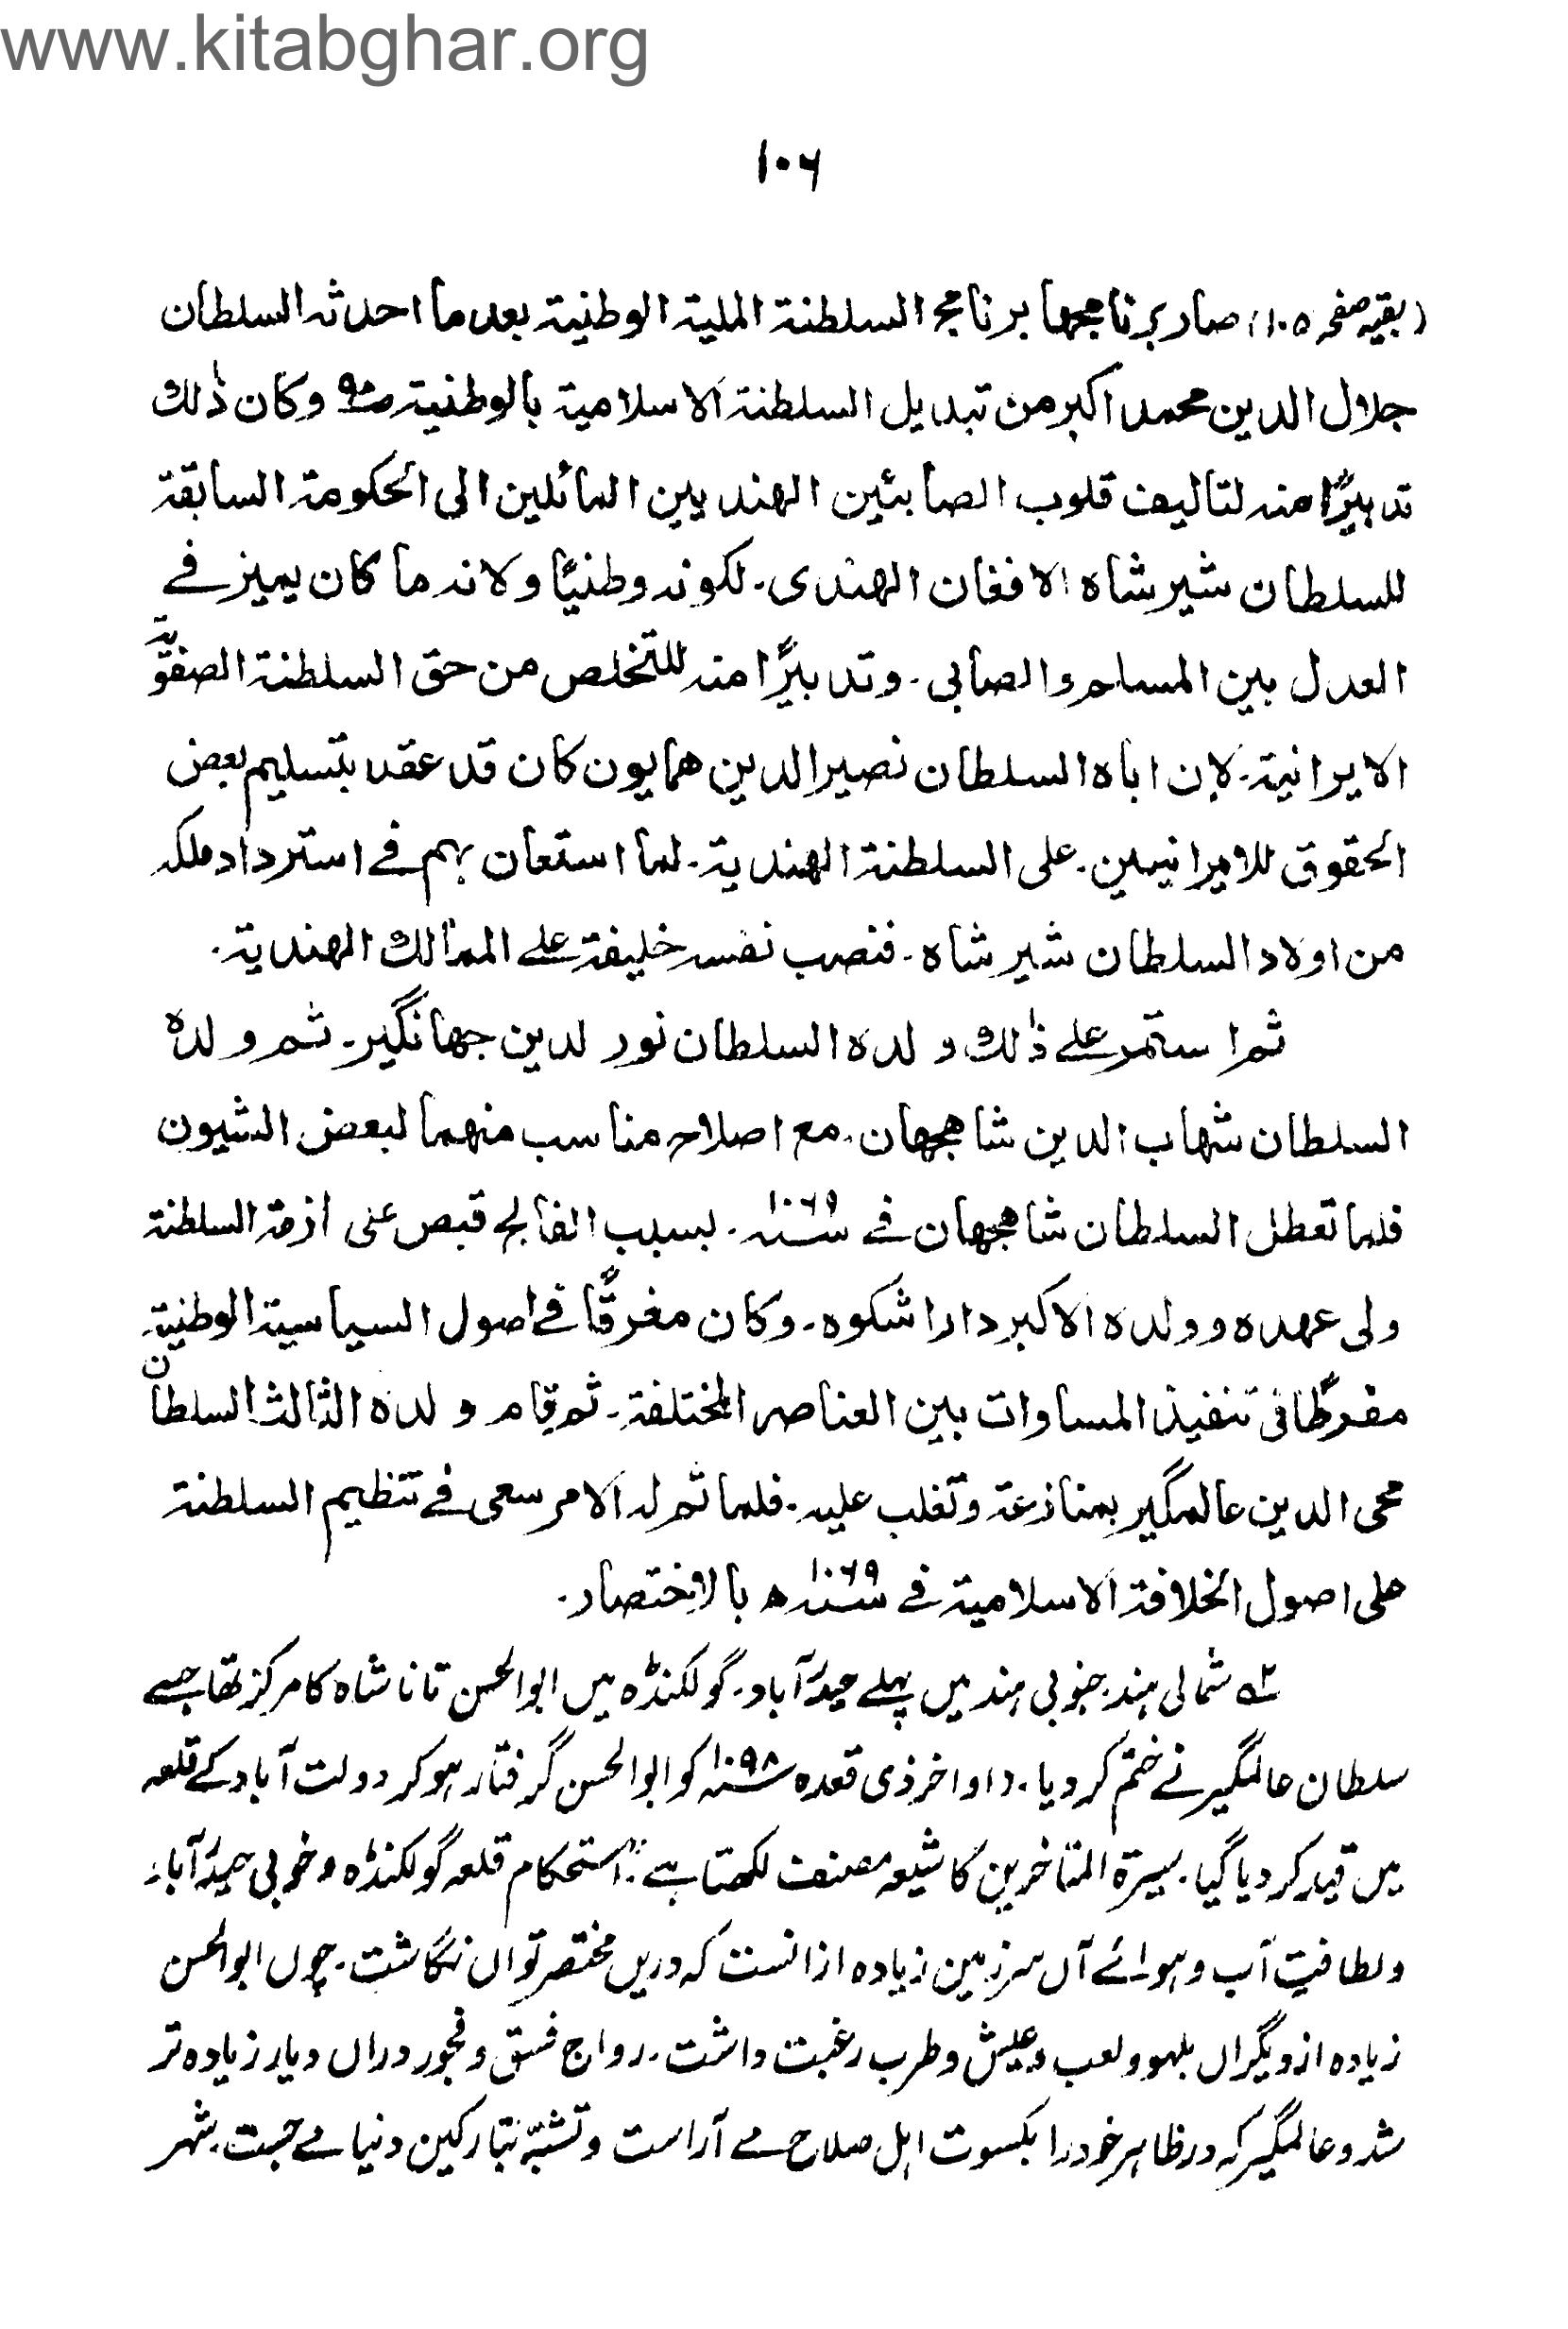 www.kitabghar.org
۱۰۶
(بقیہ صفحہ ۱۰۵) صار برنامجھا برنامج السلطنۃ الملیۃ الوطنیۃ بعد ما احدثہ السلطان
جلال الدین محمد اکبر من تبدیل السلطنۃ الاسلامیۃ بالوطنیۃ وکان ذٰلك
تدبیرًا منہ لتالیف قلوب الصابئین الھندیین المائلین الی الحکومۃ السابقۃ
للسلطان شیر شاہ الافغان الھندی۔ لکونہ وطنیًا ولانہ ما کان یمیز فے
العدل بین المسلم والصابی۔ وتدبیرًا منہ للتخلص من حق السلطنۃ الصفویۃ
الایرانیۃ۔ لان اباہ السلطان نصیر الدین ھمایون کان قد عقد بتسلیم بعض
الحقوق للایرانیین۔ علی السلطنۃ الھندیۃ۔ لما استعان بہم فے استرداد ملکہ
من اولاد السلطان شیر شاہ۔ فنصب نفسہ خلیفۃ علے الممالك الھندیۃ۔
ثم استمر علے ذٰلك ولدہ السلطان نور لدین جھانگیر۔ ثم ولدہ
السلطان شھاب الدین شاھجھان۔ مع اصلاح مناسب منھما لبعض الشیون
فلما تعطل السلطان شاھجھان فے ۱۰۶۹ سنہ۔ بسبب الفالج قبص عنی ازمۃ السلطنۃ
ولی عھدہ وولدہ الاکبر داراشکوہ۔ وکان مغرقًا فے اصول السیاسیۃ الوطنیۃ
مفرطًا فی تنفیذ المساوات بین العناصر المختلفۃ۔ ثم قام ولدہ الثالث السلطان
محی الدین عالمگیر بمنازعۃ وتغلب علیہ۔ فلما تم لہ الامر سعی فے تنظیم السلطنۃ
علی اصول الخلافۃ الاسلامیۃ فے ۱۰۶۹ سنہ ھ بالاختصار۔
۲ شمالی ہند۔ جنوبی ہند میں پہلے حیدرآباد۔ گولکنڈہ میں ابوالحسن تانا شاہ کا مرکز تھا جسے
سلطان عالمگیر نے ختم کر دیا۔ داواخر ذی قعدہ ۱۰۹۸ سنہ کو ابوالحسن گرفتار ہو کر دولت آباد کے قلعہ
میں قید کر دیا گیا۔ سیرۃ المتاخرین کا شیعہ مصنف لکھتا ہے: "استحکام قلعہ گولکنڈہ و خوبی حیدرآباد
ولطافت آب وہوائے آں سرزمین زیادہ ازانست کہ دریں مختصر تواں نگاشت۔ چوں ابوالحسن
زیادہ از دیگراں بلہو ولعب وعیش وطرب رغبت داشت۔ رواج فسق وفجور دراں دیار زیادہ تر
شد وعالمگیر کہ در ظاہر خود را بکسوت اہل صلاح مے آراست وتشبّہ بتارکین دنیا مے جست۔ شہر